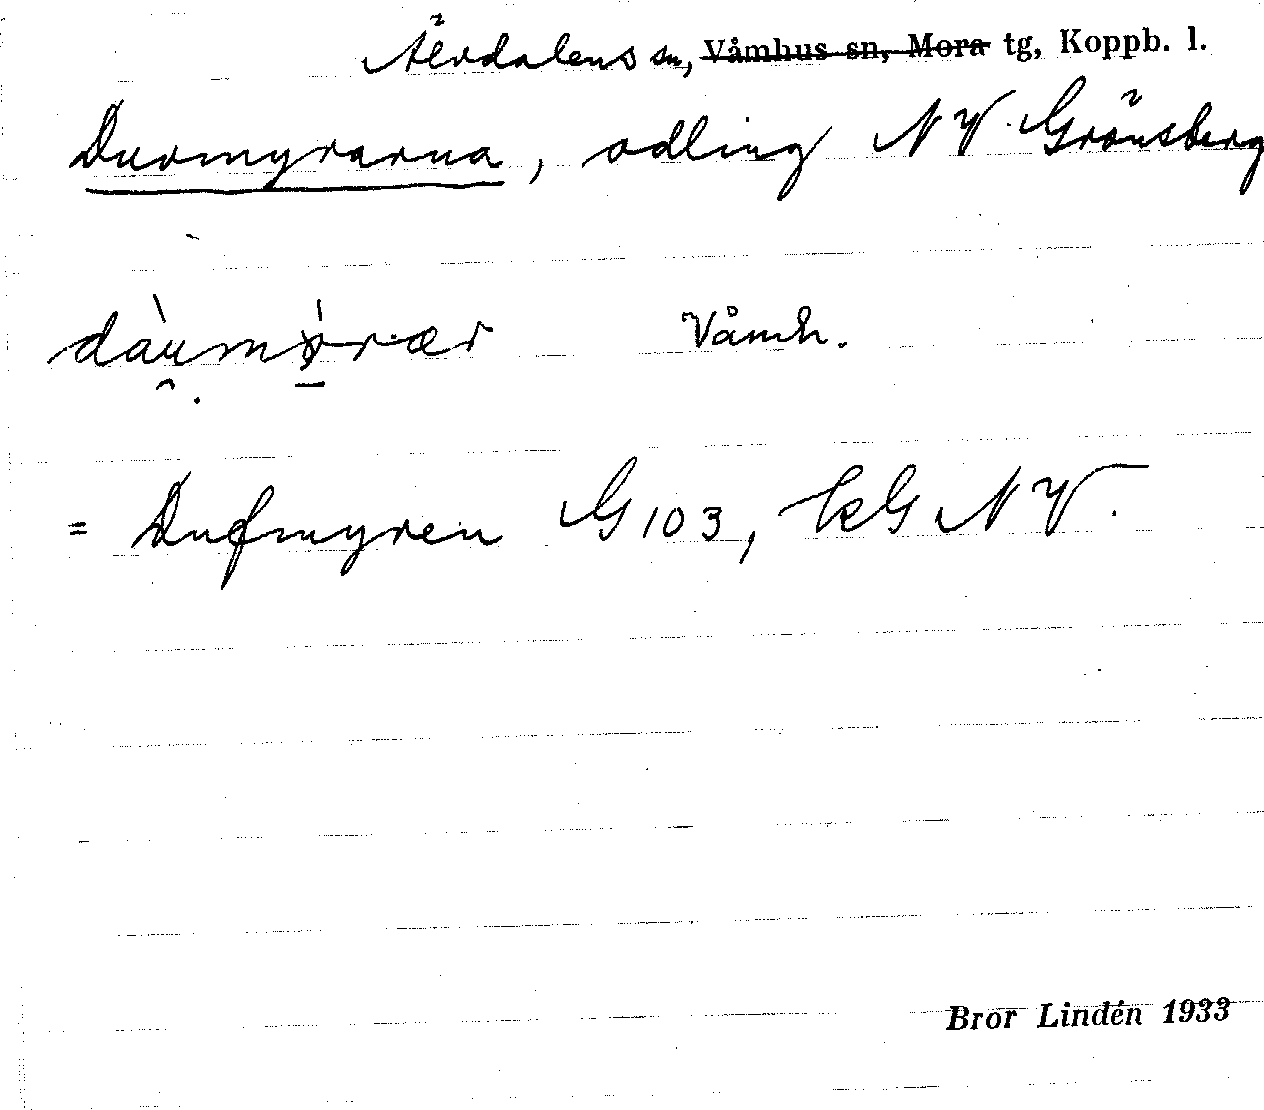 Älvdalens sn, Våmhus sn, Mora tg, Koppb. l.
Duvmyrarna, odling NV Grönsberg
Våmh.
= Dufmyren G103, kG NV.
Bror Lindén 1933